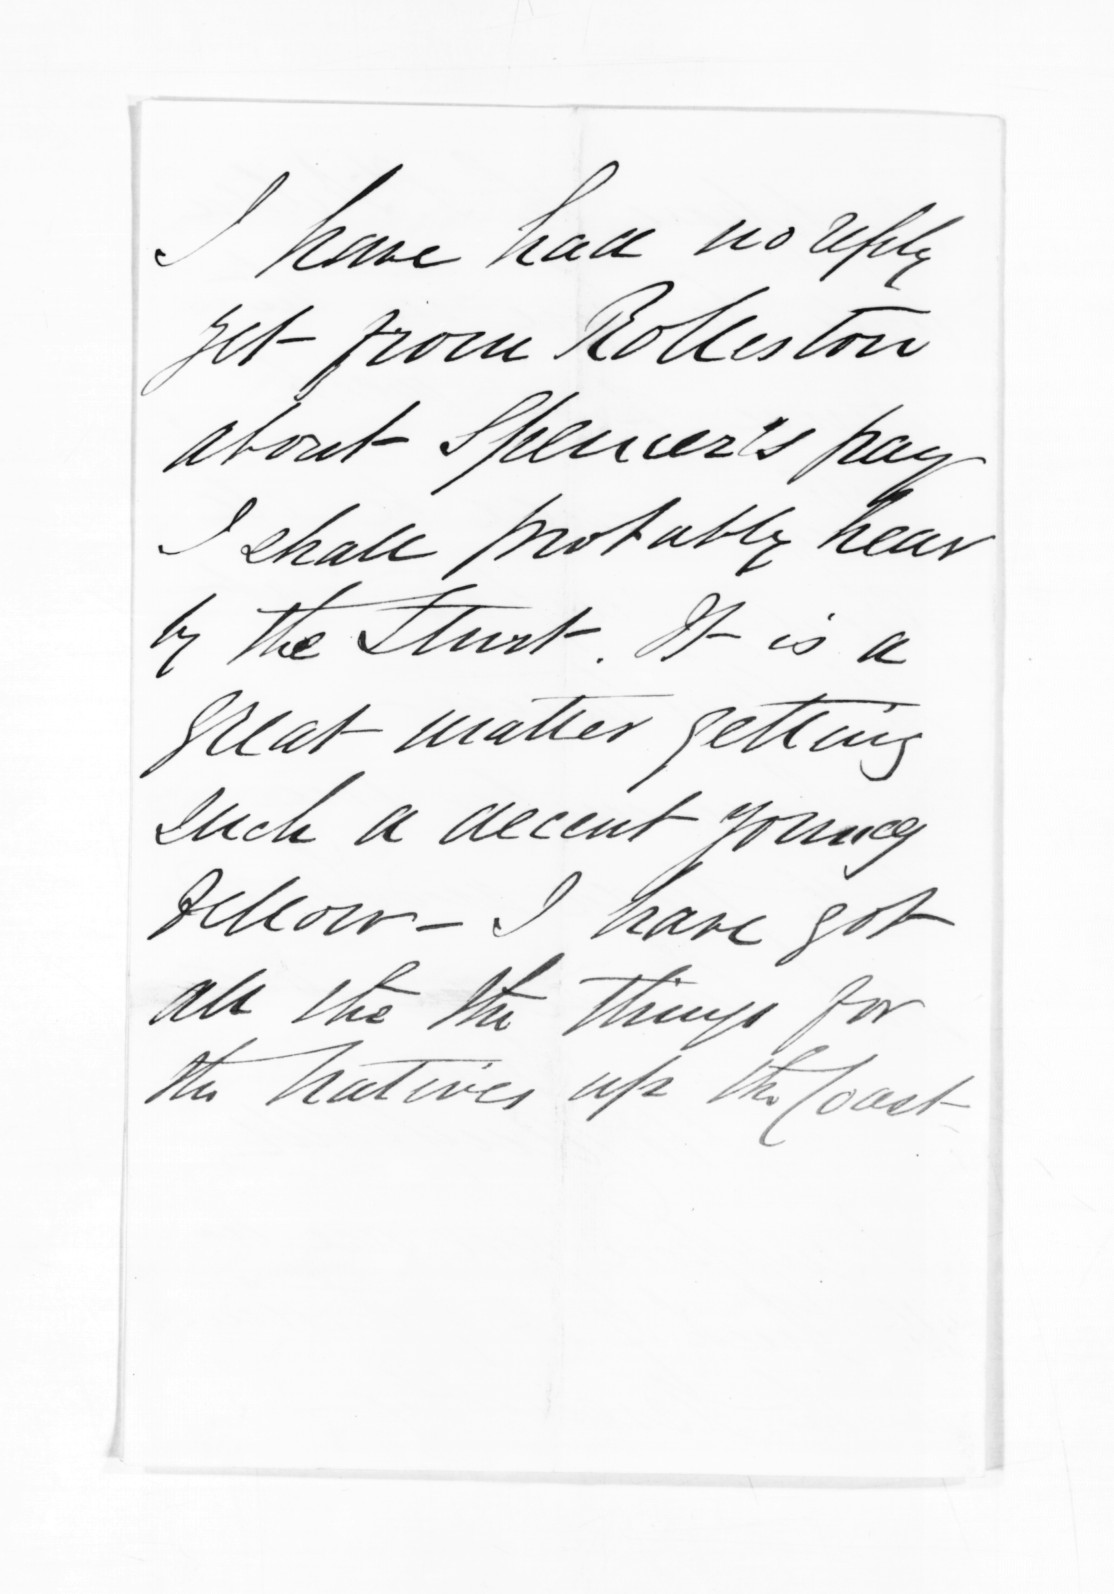 I have had no reply
yet from Rolleston
about Spencer's pay
I shall probably hear
by the Sturt. It is a
great matter getting
such a decent young
fellow – I have got
all the the things for
the Natives up the Coast